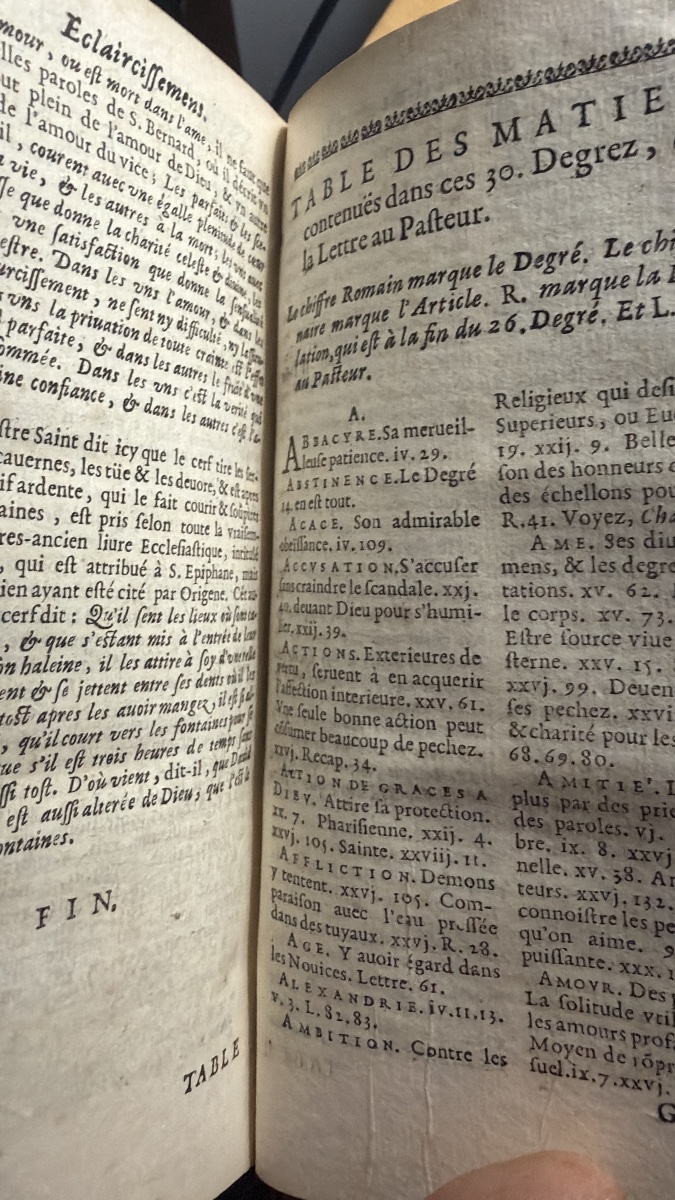 Eclaircissemens.
mour, ou est mort dans l'ame, il ne faut que
lles paroles de S. Bernard, où il décrit un
ut plein de l'amour de Dieu, & vn autre
de l'amour du vice; Les parfaits & les
il, courent auec vne égalle plenitude de cœur
vie, & les autres à la mort; les vns auec
que donne la charité celeste & diuine, les
vne satisfaction que donne la sensualité
estre. Dans les vns l'amour, & dans les
urcissement, ne sent ny difficulté, ny
vns la priuation de toute crainte est l'effet
parfaite, & dans les autres le fruit d'vne
ommée. Dans les vns c'est la verité qui
ine confiance, & dans les autres c'est l'a-
stre Saint dit icy que le cerf tire les ser-
cauernes, les tüe & les deuore, & est apres
if ardente, qui le fait courir & soûpirer
aines, est pris selon toute la vraisem-
res-ancien liure Ecclesiastique, intitulé
, qui est attribué à S. Epiphane, mais
ien ayant esté cité par Origene. Cét au-
cerf dit: Qu'il sent les lieux où sont ca-
, & que s'estant mis à l'entrée de leur
on haleine, il les attire à soy d'vne telle
ent & se jettent entre ses dents où il les
tost apres les auoir mangez, il est si al-
, qu'il court vers les fontaines pour se
ue s'il est trois heures de temps sans
ssi tost. D'où vient, dit-il, que Dauid
est aussi alterée de Dieu, que l'est le
ontaines.
FIN.
TABLE
TABLE DES MATIE
contenuës dans ces 30. Degrez,
la Lettre au Pasteur.
Le chiffre Romain marque le Degré. Le chi
naire marque l'Article. R. marque la
lation, qui est à la fin du 26. Degré. Et L.
au Pasteur.
A.
ABBACYRE. Sa merueil-
leuse patience. iv. 29.
ABSTINENCE. Le Degré
14. en est tout.
ACACE. Son admirable
obeissance. iv. 109.
ACCVSATION, S'accuser
sans craindre le scandale. xxj.
40. deuant Dieu pour s'humi-
lier. xxij. 39.
ACTIONS. Exterieures de
vertu, seruent à en acquerir
l'affection interieure. xxv. 61.
Vne seule bonne action peut
consumer beaucoup de pechez.
xxvj. Recap. 34.
ACTION DE GRACES A
DIEV. Attire sa protection.
xx. 7. Pharisienne. xxij. 4.
xxvj. 105. Sainte. xxviij. 11.
AFFLICTION. Demons
y tentent. xxvj. 105. Com-
paraison auec l'eau pressée
dans des tuyaux. xxvj. R. 28.
AGE. Y auoir égard dans
les Nouices. Lettre. 61.
ALEXANDRIE. iv. 11. 13.
v. 3. L. 82. 83.
AMBITION. Contre les
Religieux qui desi
Superieurs, ou Eue
19. xxij. 9. Belle
son des honneurs
des échellons pou
R. 41. Voyez, Cha
AME. Ses diu
mens, & les degre
tations. xv. 62.
le corps. xv. 73.
Estre source viue
sterne. xxv. 15.
xxvj. 99. Deuen
ses pechez. xxvi
& charité pour les
68. 69. 80.
AMITIE'.
plus par des prie
des paroles. vj.
bre. ix. 8. xxvj
nelle. xv. 38. Ar
teurs. xxvj. 132.
connoistre les pe
qu'on aime. 9
puissante. xxx. 1
AMOVR. Des
La solitude vtil
les amours prof
Moyen de rõpr
suel. ix. 7. xxvj.
G